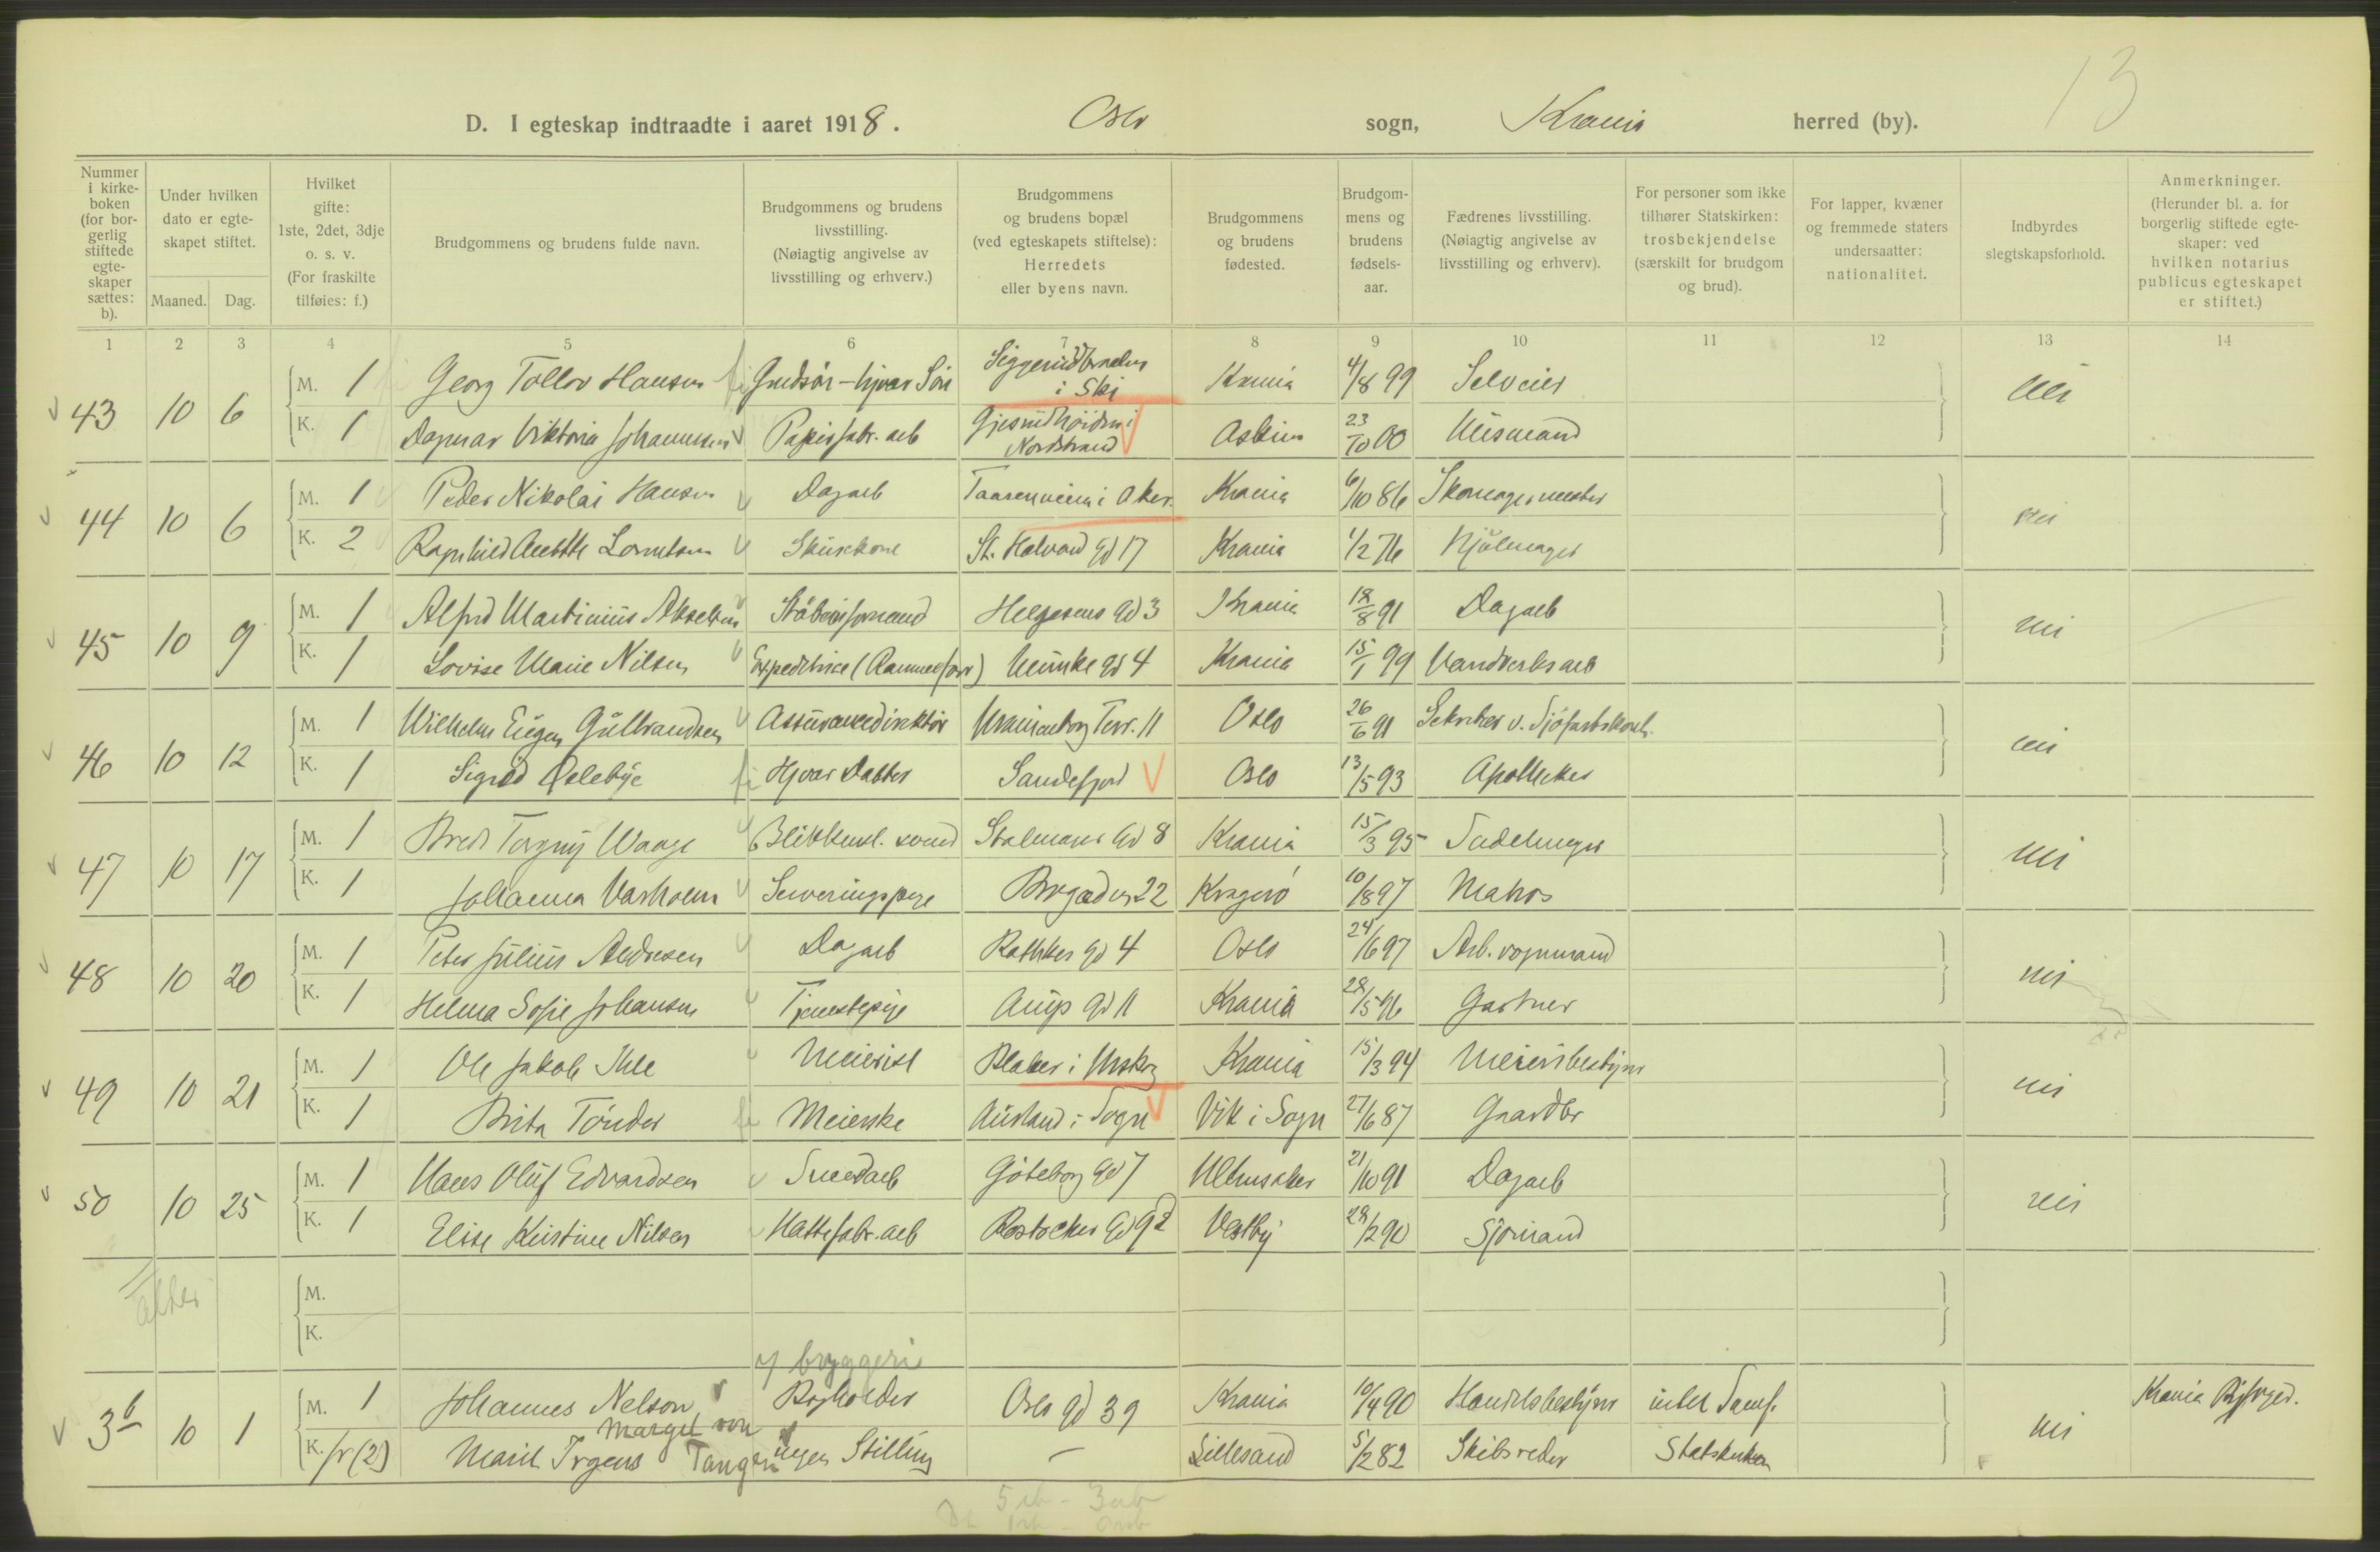 13
D. I egteskap indtraadte i aaret 1918. Oslo sogn, Krania herred (by).
Nummer i kirkeboken (for borgerlig stiftede egteskaper sættes: b).
Under hvilken dato er egteskapet stiftet.
Maaned. Dag.
Hvilket gifte: 1ste, 2det, 3dje o. s. v. (For fraskilte tilføies: f.)
Brudgommens og brudens fulde navn.
Brudgommens og brudens livsstilling. (Nøiagtig angivelse av livsstilling og erhverv.)
Brudgommens og brudens bopæl (ved egteskapets stiftelse): Herredets eller byens navn.
Brudgommens og brudens fødested.
Brudgommens og brudens fødselsaar.
Fædrenes livsstilling. (Nøiagtig angivelse av livsstilling og erhverv).
For personer som ikke tilhører Statskirken: trosbekjendelse (særskilt for brudgom og brud).
For lapper, kvæner og fremmede staters undersaatter: nationalitet.
Indbyrdes slegtskapsforhold.
Anmerkninger. (Herunder bl. a. for borgerlig stiftede egteskaper: ved hvilken notarius publicus egteskapet er stiftet.)
1 2 3 4 5 6 7 8 9 10 11 12 13 14
43 10 6 M. 1 Georg Tollov Hansen i Ski Krania 4/8 99 Selveier nei
K. 1 Dagmar Viktoria Johannesen Papirfabr. arb Nordstrand Askim 23/10 00 Husmand
44 10 6 M. 1 Peder Nikolai Hansen Dagarb Taasenveien i Aker. Krania 6/10 86 Skomagermester nei
K. 2 Ragnhild Anette Lorentsen Skurekone St. Halvard gd 17 Krania 1/2 76 Hjulmager
45 10 9 M. 1 Alfred Martinius Akselsen Støberiformand Helgesens gd 3 Krania 18/8 91 Dagarb nei
K. 1 Lovise Marie Nilsen Expeditrice (Rammeforr) Munke gd 4 Krania 15/1 99 Vandverks arb
46 10 12 M. 1 Wilhelm Eugen Gulbrandsen Assurancedirektør Uranienborg Terr. 11 Oslo 26/6 91 Sekretær v. Sjøfartskont. nei
K. 1 Sigrid Delebye Hjvær. Datter Sandefjord Oslo 13/5 93 Apotheker
47 10 17 M. 1 Bred Torgny Waage Blikkensl. svend Stalmager gd 8 Krania 15/3 95 Sadelmager nei
K. 1 Johanna Varholm Serveringspige Brogaden 22 Kragerø 10/8 97 Matros
48 10 20 M. 1 Peter Julius Andresen Dagarb Rathkes gd 4 Oslo 24/6 97 Arb. vognmand nei
K. 1 Helma Sofie Johansen Tjenestepige Krania 28/5 96 Gartner
49 10 21 M. 1 Ole Jakob Ihle Meierist Blaker i Urskog Krania 15/3 94 Meieribestyrer nei
K. 1 Brita Tønder Meierske Aurland i Sogn Vik i Sogn 27/6 87 Gaardbr
50 10 25 M. 1 Hans Oluf Edvardsen Smedarb Gøteborg gd 7 Ullensaker 21/10 91 Dagarb nei
K. 1 Elise Kristine Nilsen Hattefabr. arb Rostocker gd 92 Vestby 28/2 90 Sjømand
M.
K.
y bryggeri
3b 10 1 M. 1 Johannes Nelson Bogholder Oslo gd 39 Krania 10/4 90 Handelsbestyrer intet Samf. nei Krania Byfoged.
Margit von
K. fr (2) Marit Irgens Tangen ingen Stilling — Lillesand 5/2 82 Skibsreder Statskirken